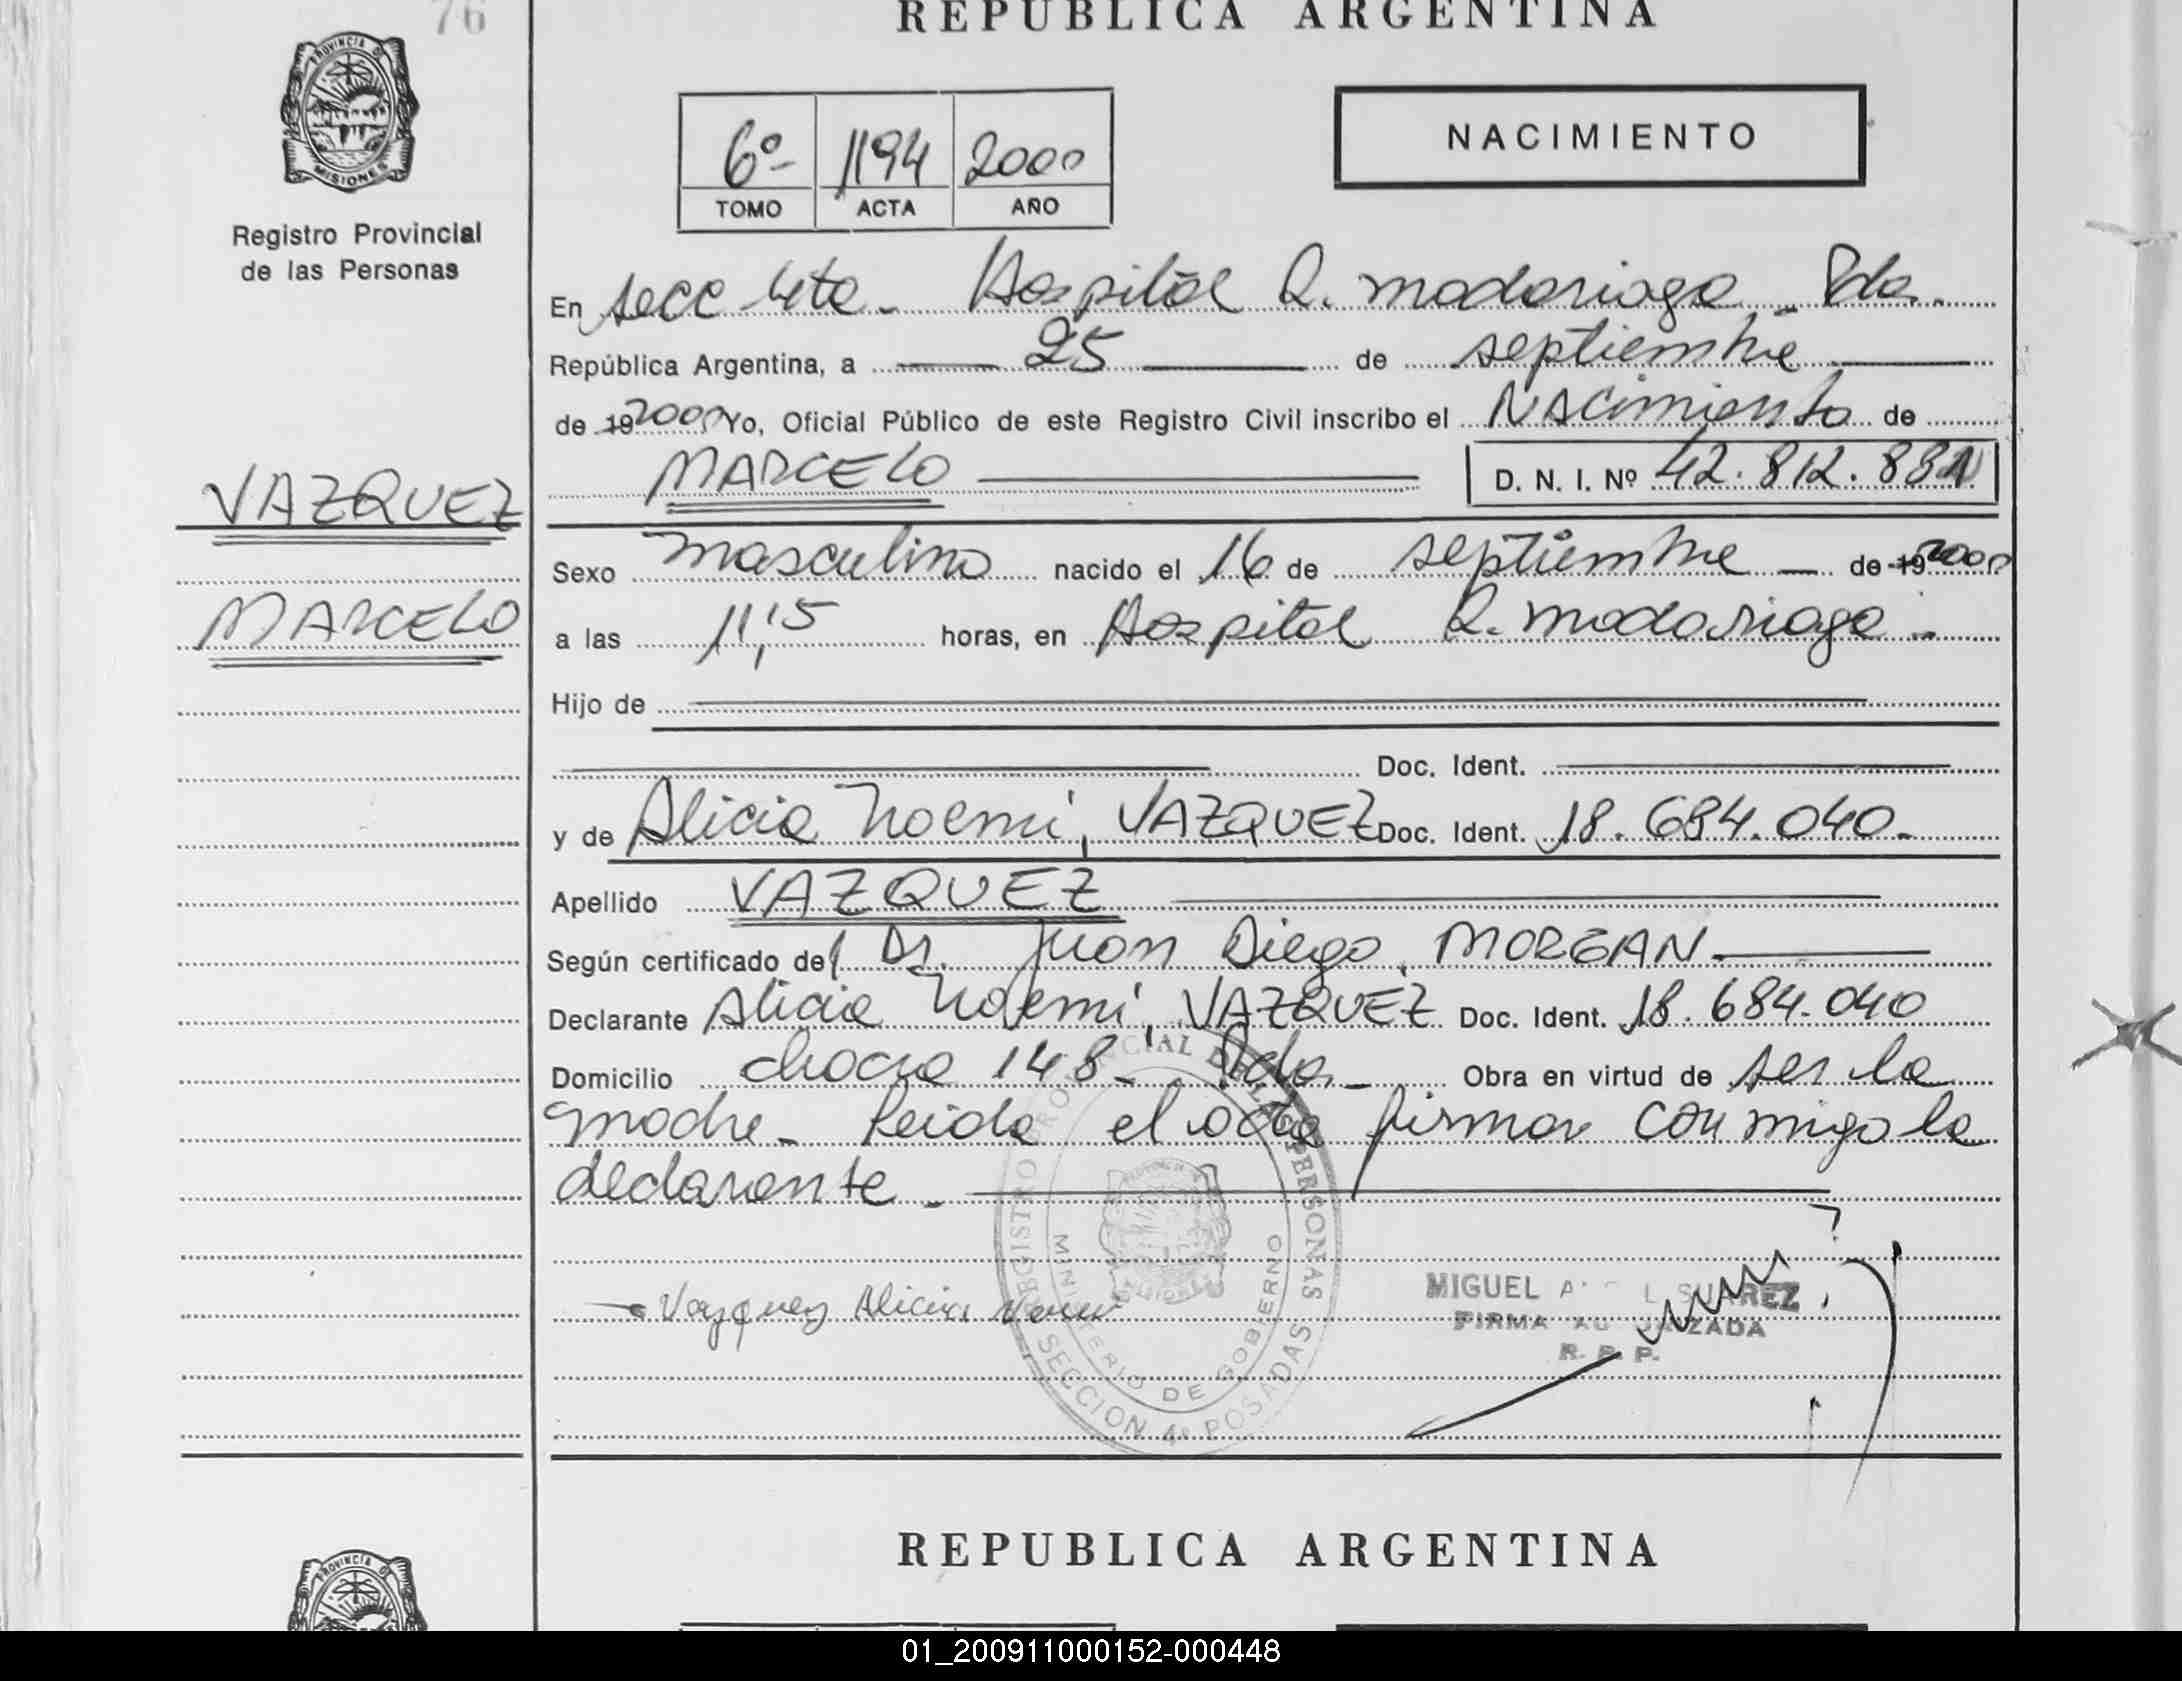 76
REPUBLICA ARGENTINA
PROVINCIA DE
MISIONES
Registro Provincial
de las Personas
6º- 1194 2000
TOMO ACTA AÑO
NACIMIENTO
En secc 4ta - Hospital R. Madariaga - Pdas.
República Argentina, a 25 de septiembre
de 19 2000 Yo, Oficial Público de este Registro Civil inscribo el Nacimiento de
MARCELO D. N. I. Nº 42.812.881
VAZQUEZ
MARCELO
Sexo masculino nacido el 16 de septiembre - de 19 2000
a las 11,15 horas, en Hospital R. Madariaga.-
Hijo de
Doc. Ident.
y de Alicia Noemí, VAZQUEZ Doc. Ident. 18.684.040.
Apellido VAZQUEZ
Según certificado del Dr. Juan Diego, MORGAN
Declarante Alicia Noemí, VAZQUEZ Doc. Ident. 18.684.040
Domicilio chacra 148 - Pdas - Obra en virtud de ser la
madre - Leida el acta firmar conmigo la
declarante -
REGISTRO PROVINCIAL DE LAS PERSONAS
MINISTERIO DE GOBIERNO
SECCION 4ª POSADAS
Vazquez Alicia Noemi
MIGUEL SUAREZ
FIRMA AUTORIZADA
R. P. P.
REPUBLICA ARGENTINA
PROVINCIA DE
01_200911000152-000448